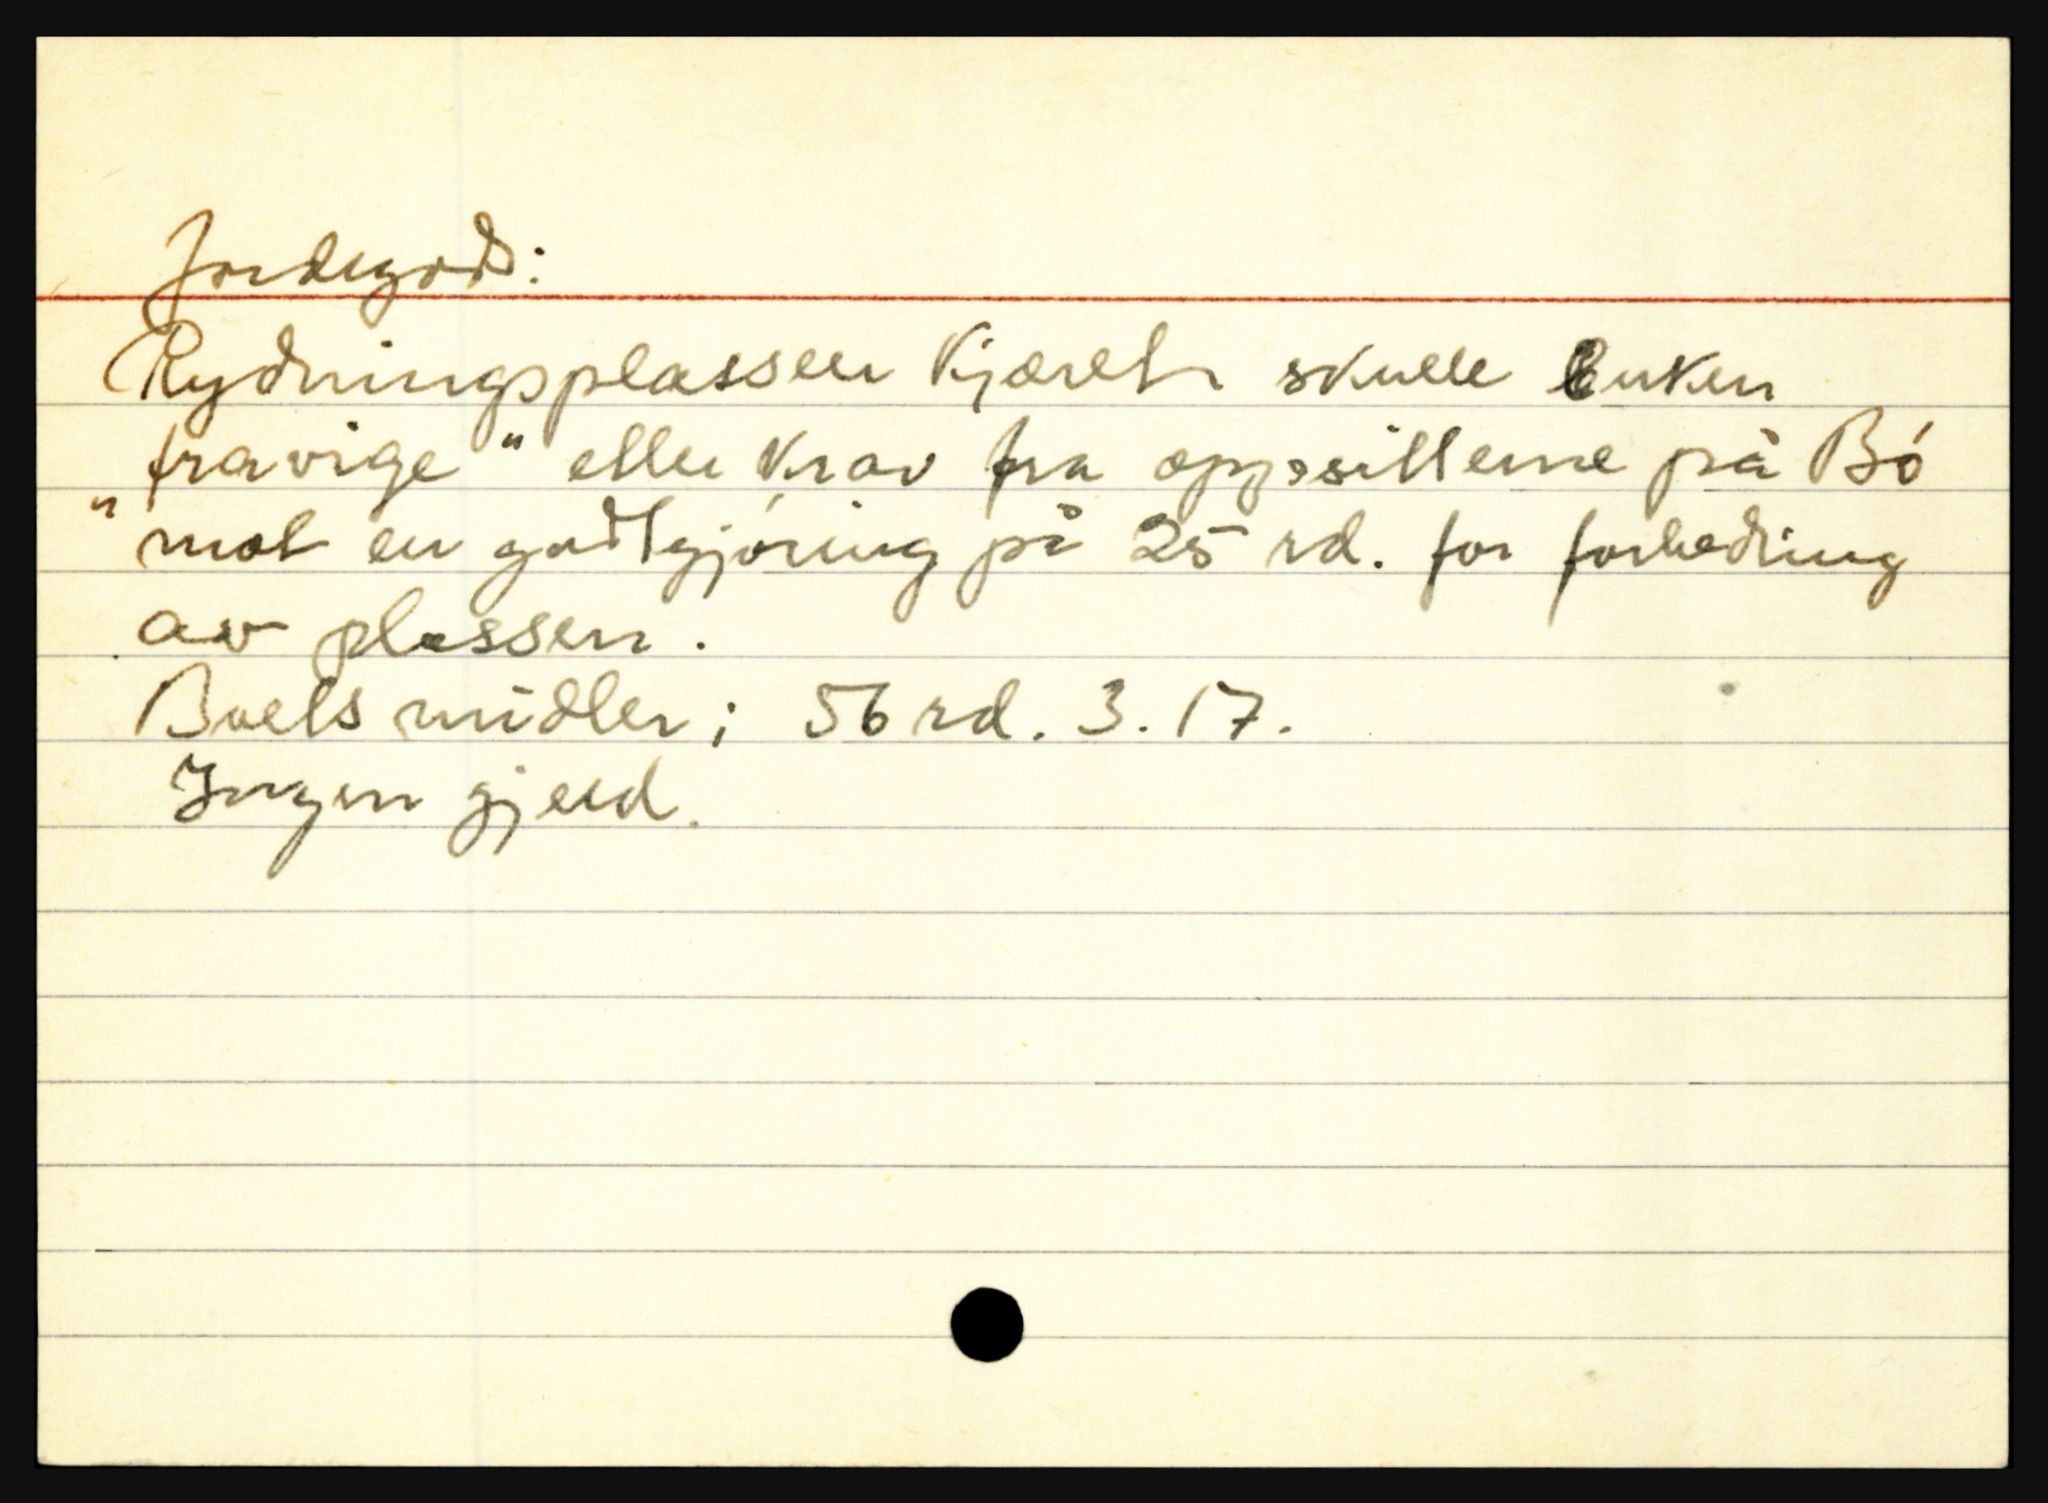 Jordegods:
Rydningsplassen Kjæret skulle enken
fravige" etter krav fra oppsitterne på Bó
"mot en godtgjóring på 25 rd. for forbedring
av plassen.
Boets midler; 56 rd. 3. 17.
Ingen gjeld.